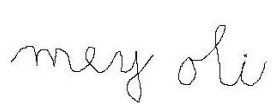 mey ohi